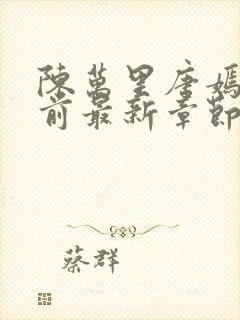 陳萬里唐嫣
前最新章節
蔡群